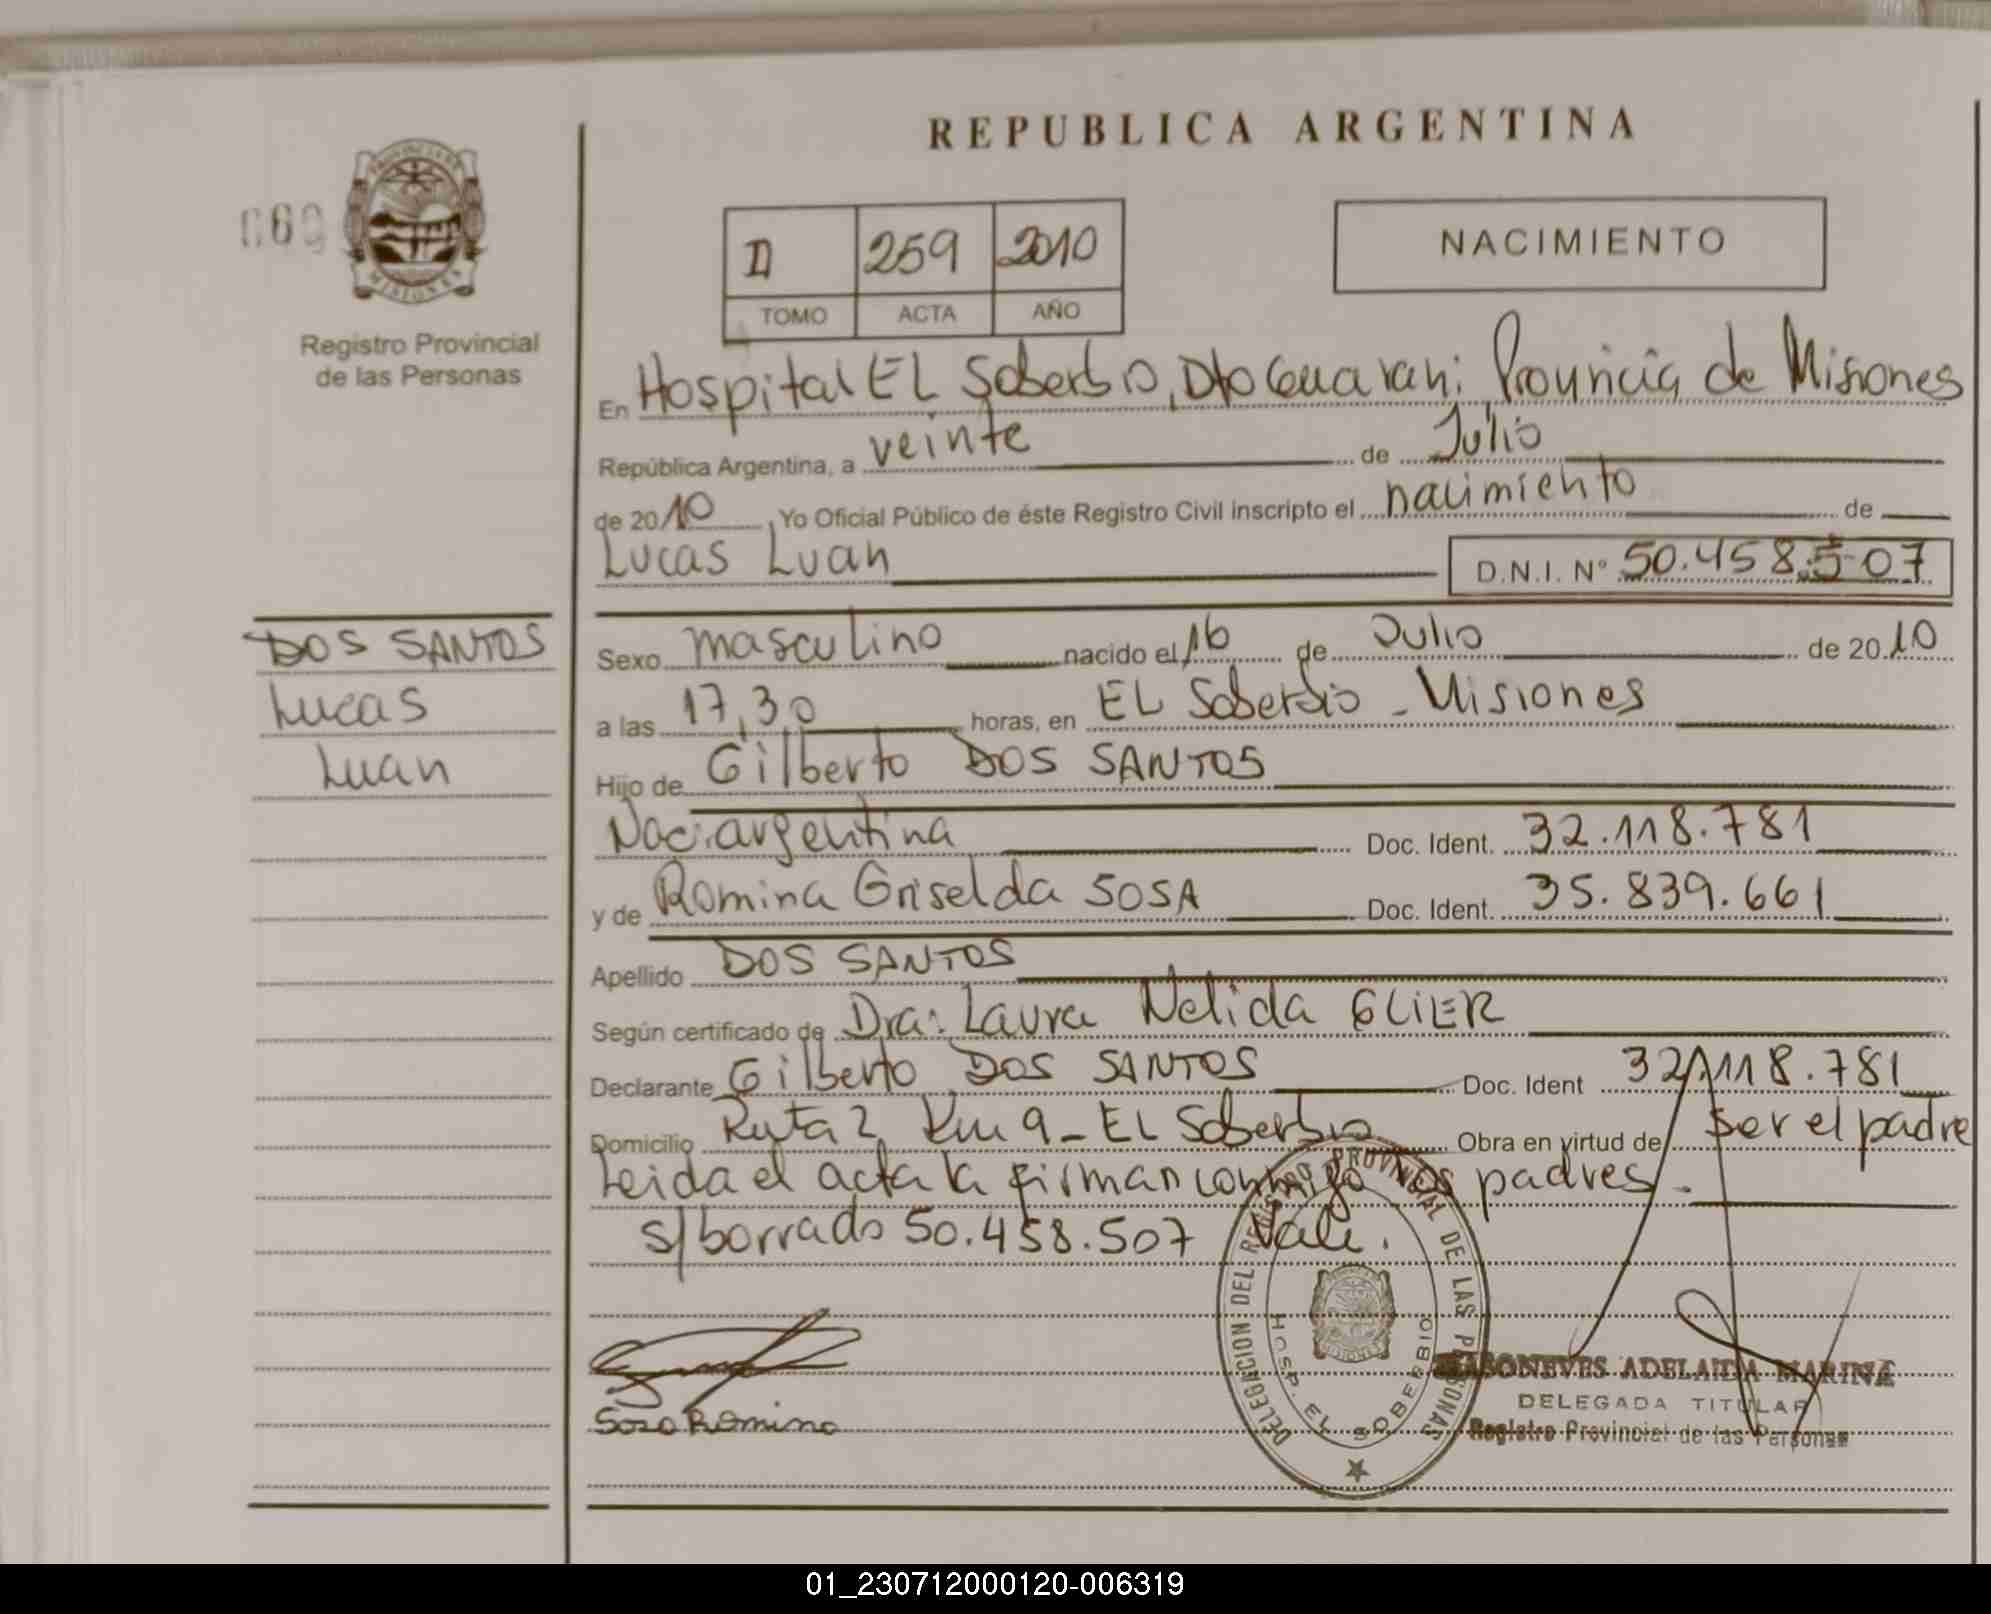 REPUBLICA ARGENTINA
069
PROVINCIA DE
MISIONES
Registro Provincial
de las Personas
II 259 2010
TOMO ACTA AÑO
NACIMIENTO
En Hospital EL Soberbio, Dto Guarani Provincia de Misiones
República Argentina, a veinte de Julio
de 2010, Yo Oficial Público de éste Registro Civil inscripto el nacimiento de
Lucas Luan D.N.I. N° 50.458.507
DOS SANTOS
Lucas
Luan
Sexo masculino nacido el 16 de Julio de 2010
a las 17,30 horas, en EL Soberbio - Misiones
Hijo de Gilberto DOS SANTOS
Nac. argentina Doc. Ident. 32.118.781
y de Romina Griselda SOSA Doc. Ident. 35.839.661
Apellido DOS SANTOS
Según certificado de Dra: Laura Nelida GLIER
Declarante Gilberto DOS SANTOS Doc. Ident 32.118.781
Domicilio Ruta 2 Km 9 - EL Soberbio Obra en virtud de ser el padre
Leida el acta la firman conmigo los padres -
s/borrado 50.458.507 Vale.
DELEGACION DEL REGISTRO PROVINCIAL DE LAS PERSONAS
HOSP. EL SOBERBIO
MISIONES
Soso Romino
ADELAIDA MARINA
DELEGADA TITULAR
Registro Provincial de las Personas
01_230712000120-006319